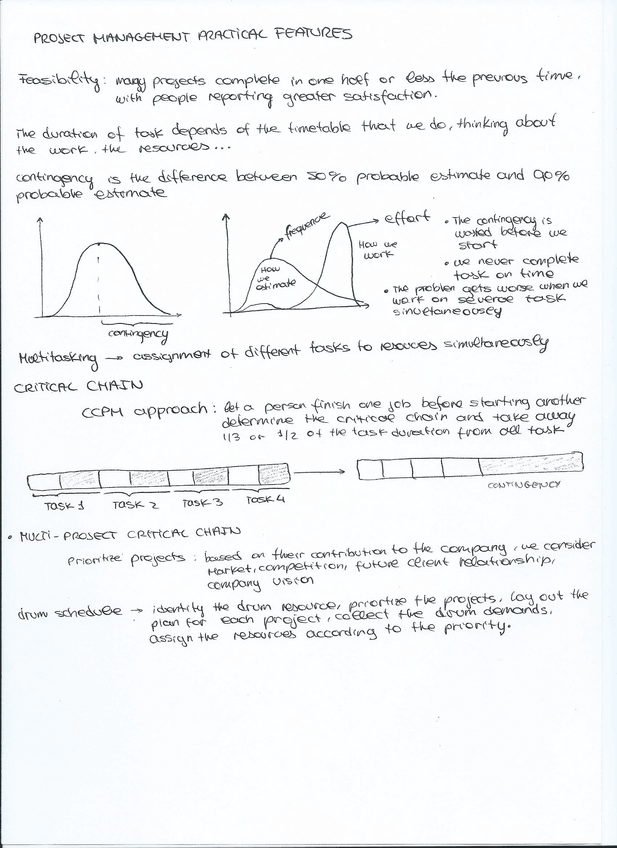 PROJECT MANAGEMENT PRACTICAL FEATURES
Feasibility: many projects complete in one half or less the previous time,
with people reporting greater satisfaction.
The duration of task depends of the timetable that we do, thinking about
the work, the resources...
contingency is the difference between 50% probable estimate and 90%
probable estimate
contingency
frequence
effort
How we
estimate
How we
work
• The contingency is
wasted before we
start
• we never complete
task on time
• The problem gets worse when we
work on severoe task
simultaneously
Multitasking → assignment of different tasks to resouces simultaneously
CRITICAL CHAIN
CCPM approach: let a person finish one job before starting another
determine the critical chain and take away
1/3 or 1/2 of the task duration from all task
TASK 1 TASK 2 TASK 3 TASK 4
CONTINGENCY
• MULTI-PROJECT CRITICAL CHAIN
Prioritize projects: based on their contribution to the company, we consider
Market, competition, future client relationship,
company vision
drum schedule → identify the drum resource, priortize the projects, lay out the
plan for each project, collect the drum demands,
assign the resources according to the priority.